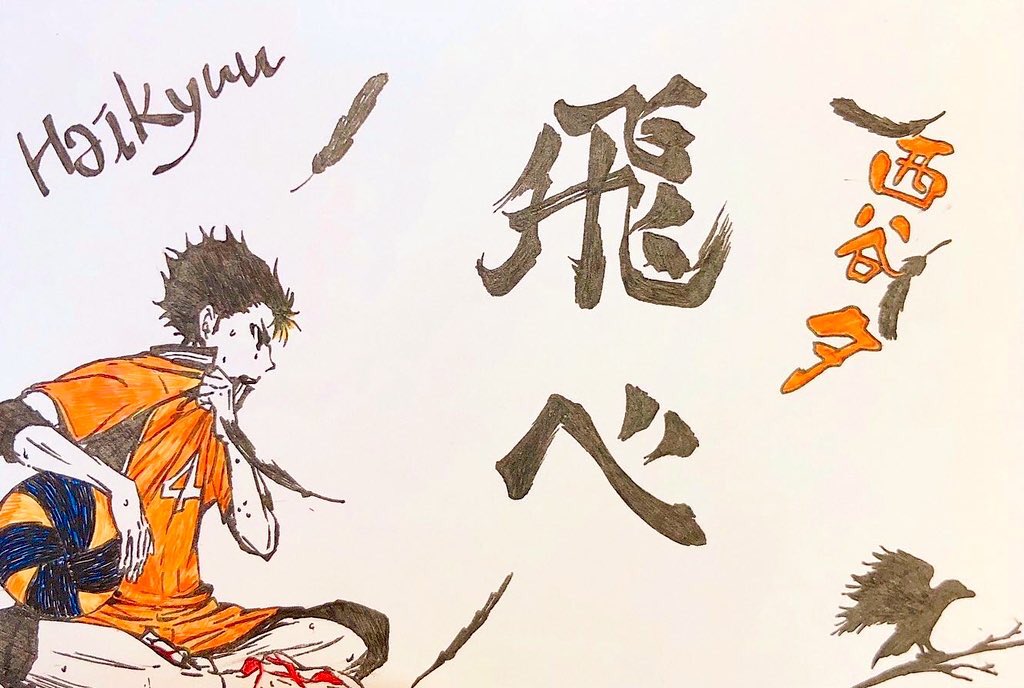 Haikyuu
飛べ
西谷夕
4